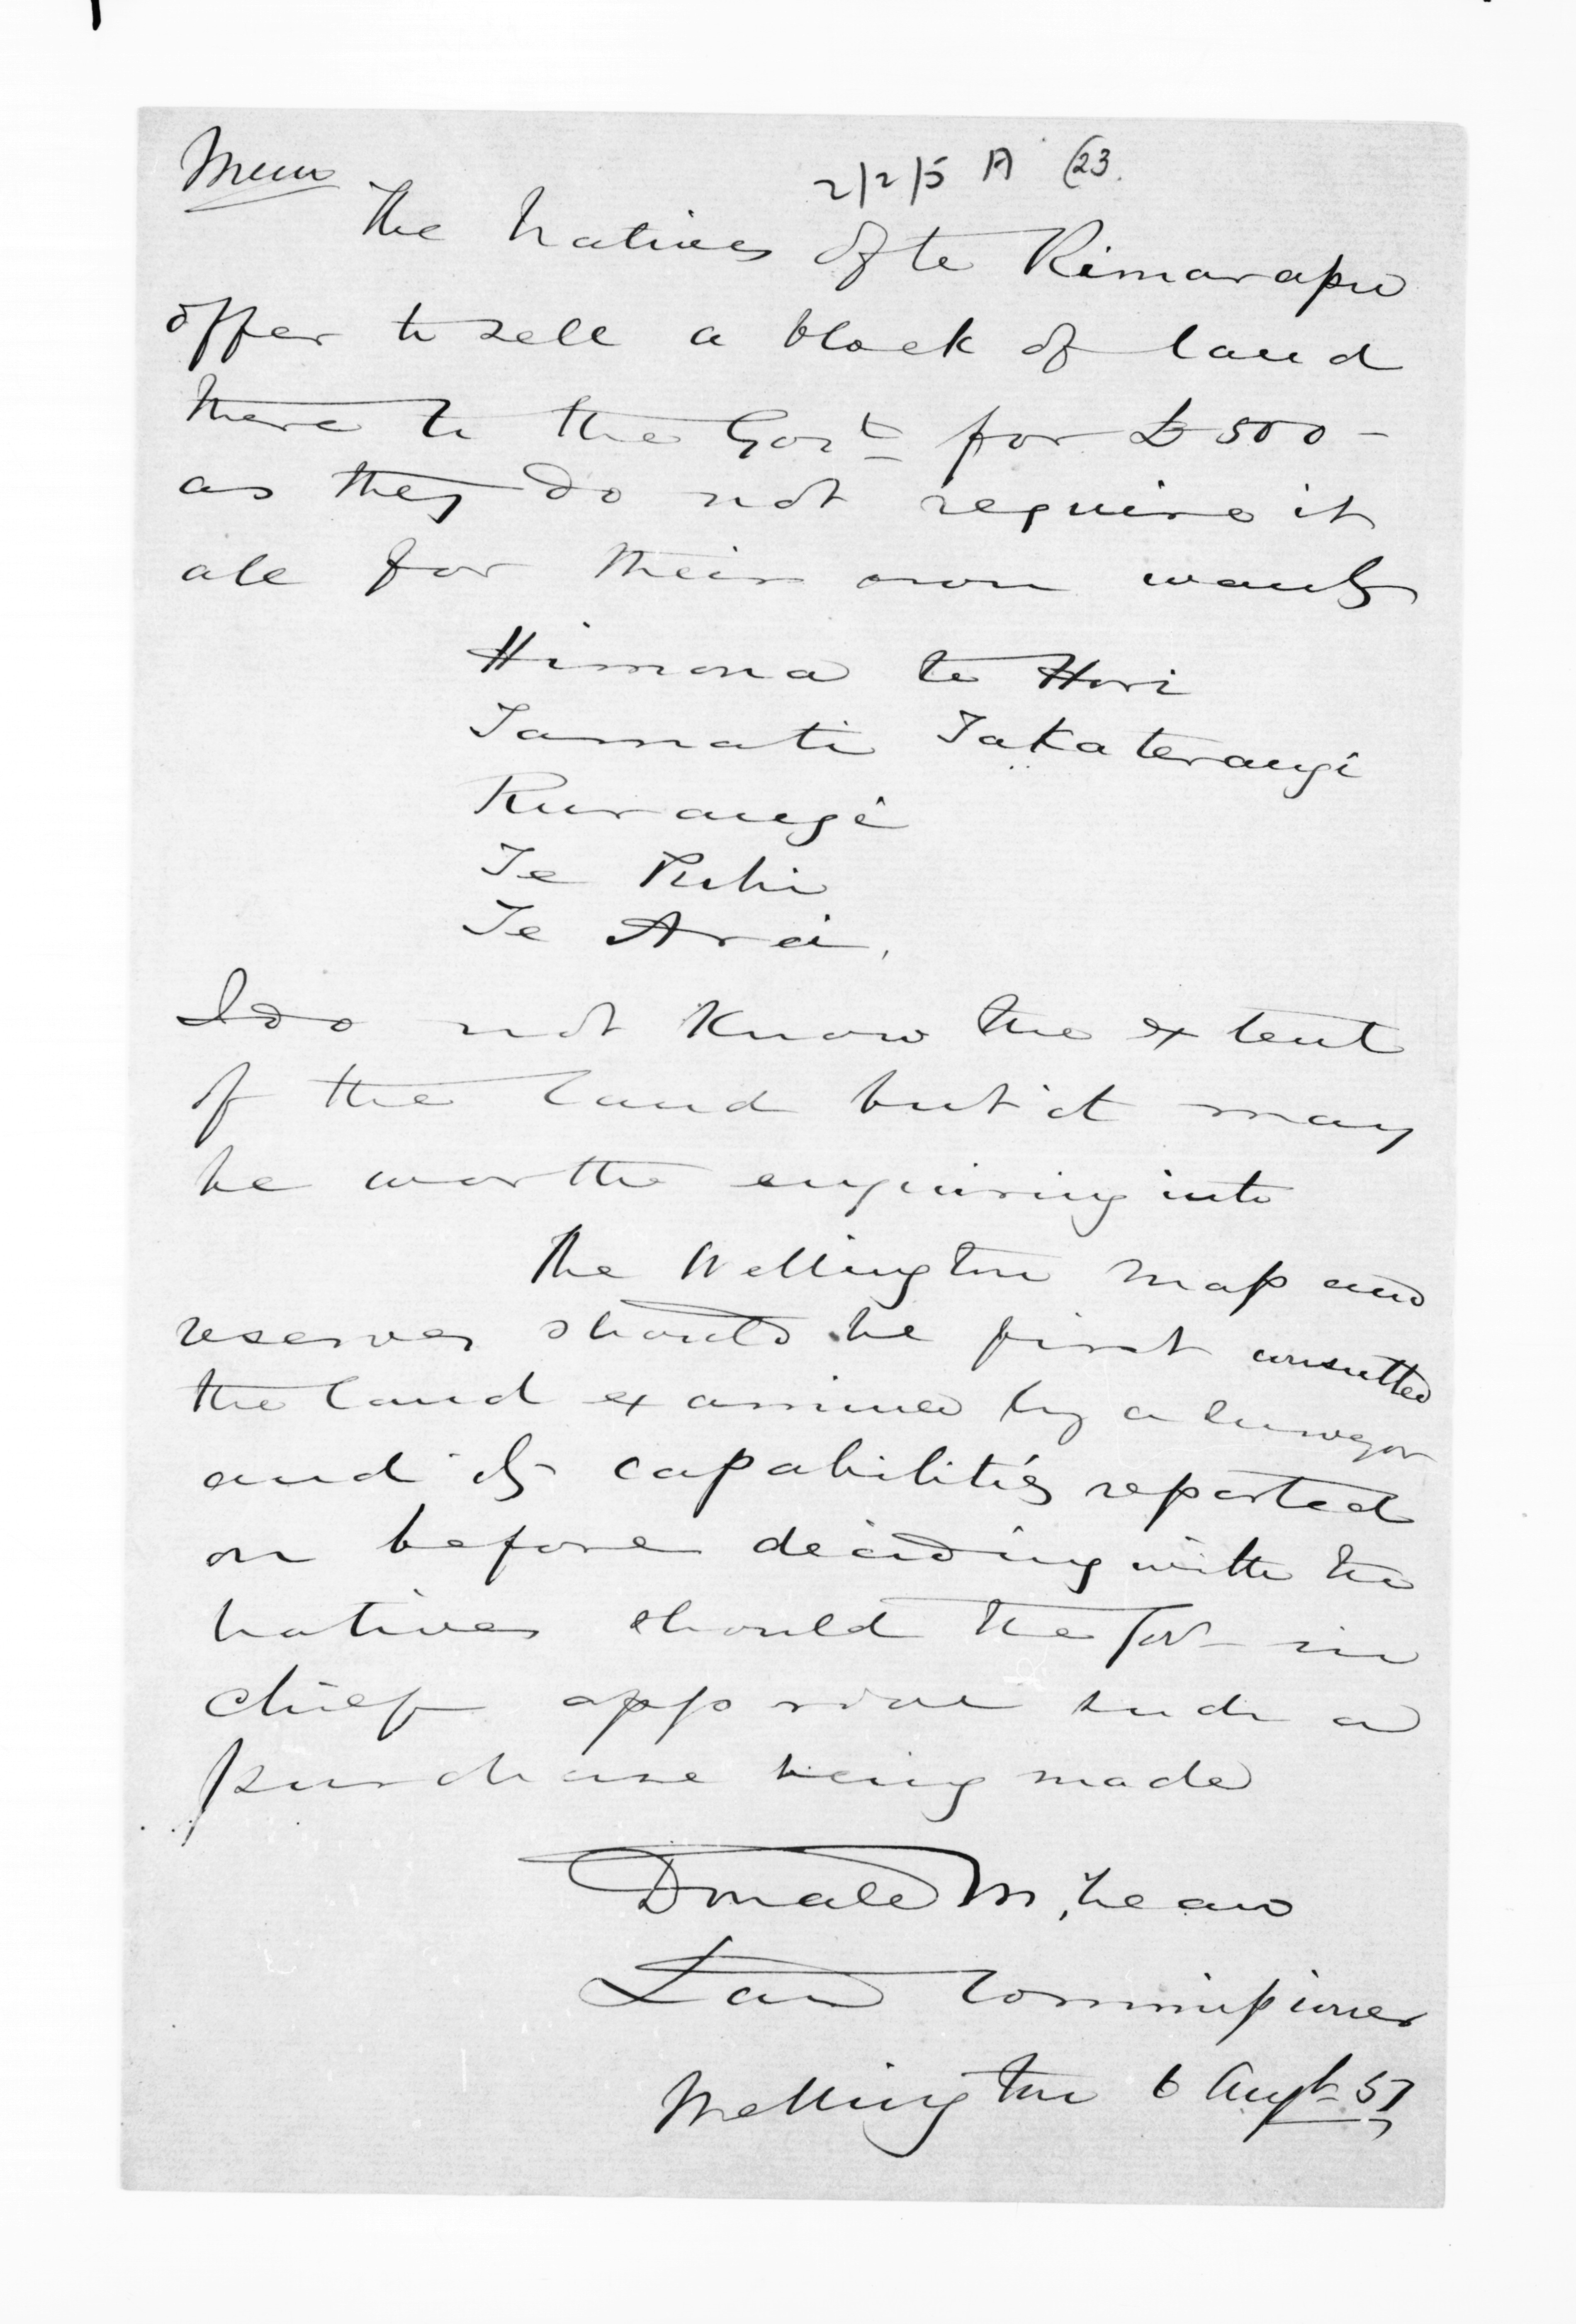 Memo
2/2/5 A (23.
The Natives of te Rimarapu
offer to sell a block of land
there to the Govt for £500 -
as they do not require it
all for their own wants
Himona te Hori
Tamati Takaterangi
Kurangi
Te Puhi
Te Ara,
I do not know the extent
of the land but it may
be worth enquiring into
The Wellington map and
reserves should be first consulted
the land examined by a Surveyor
and its capabilities reported
on before deciding with the
natives should the Govr in
chief approve such a
purchase being made
Donald McLean
Land Commissioner
Wellington 6 Augt 51